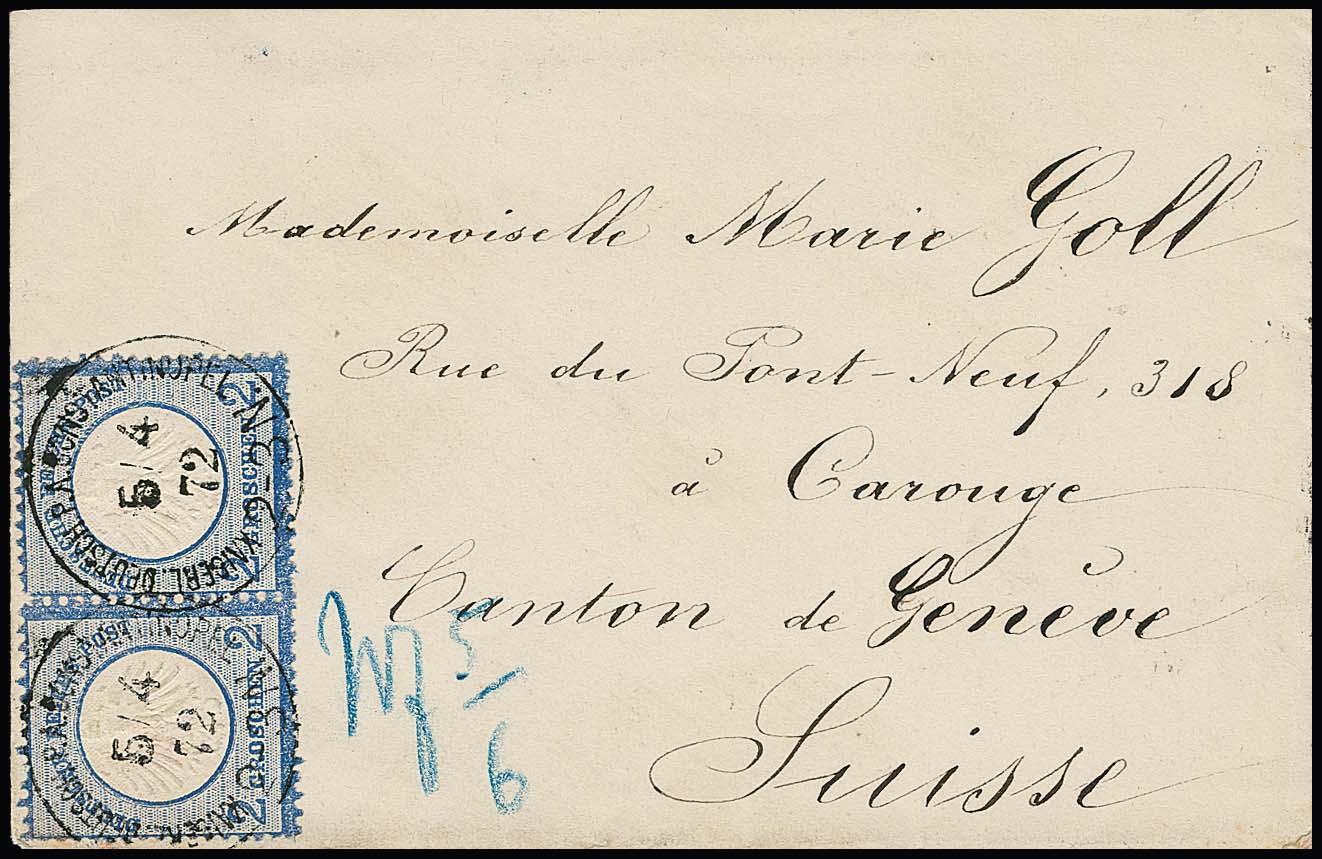 Mademoiselle Marie Goll
Rue du Pont-Neuf, 318
à Carouge
Canton de Genève
Suisse
KAISERL. DEUTSCH. P.A. CONSTANTINOPEL
5/4
72
2 GROSCHEN 2
5/4
72
2 GROSCHEN 2
5
6